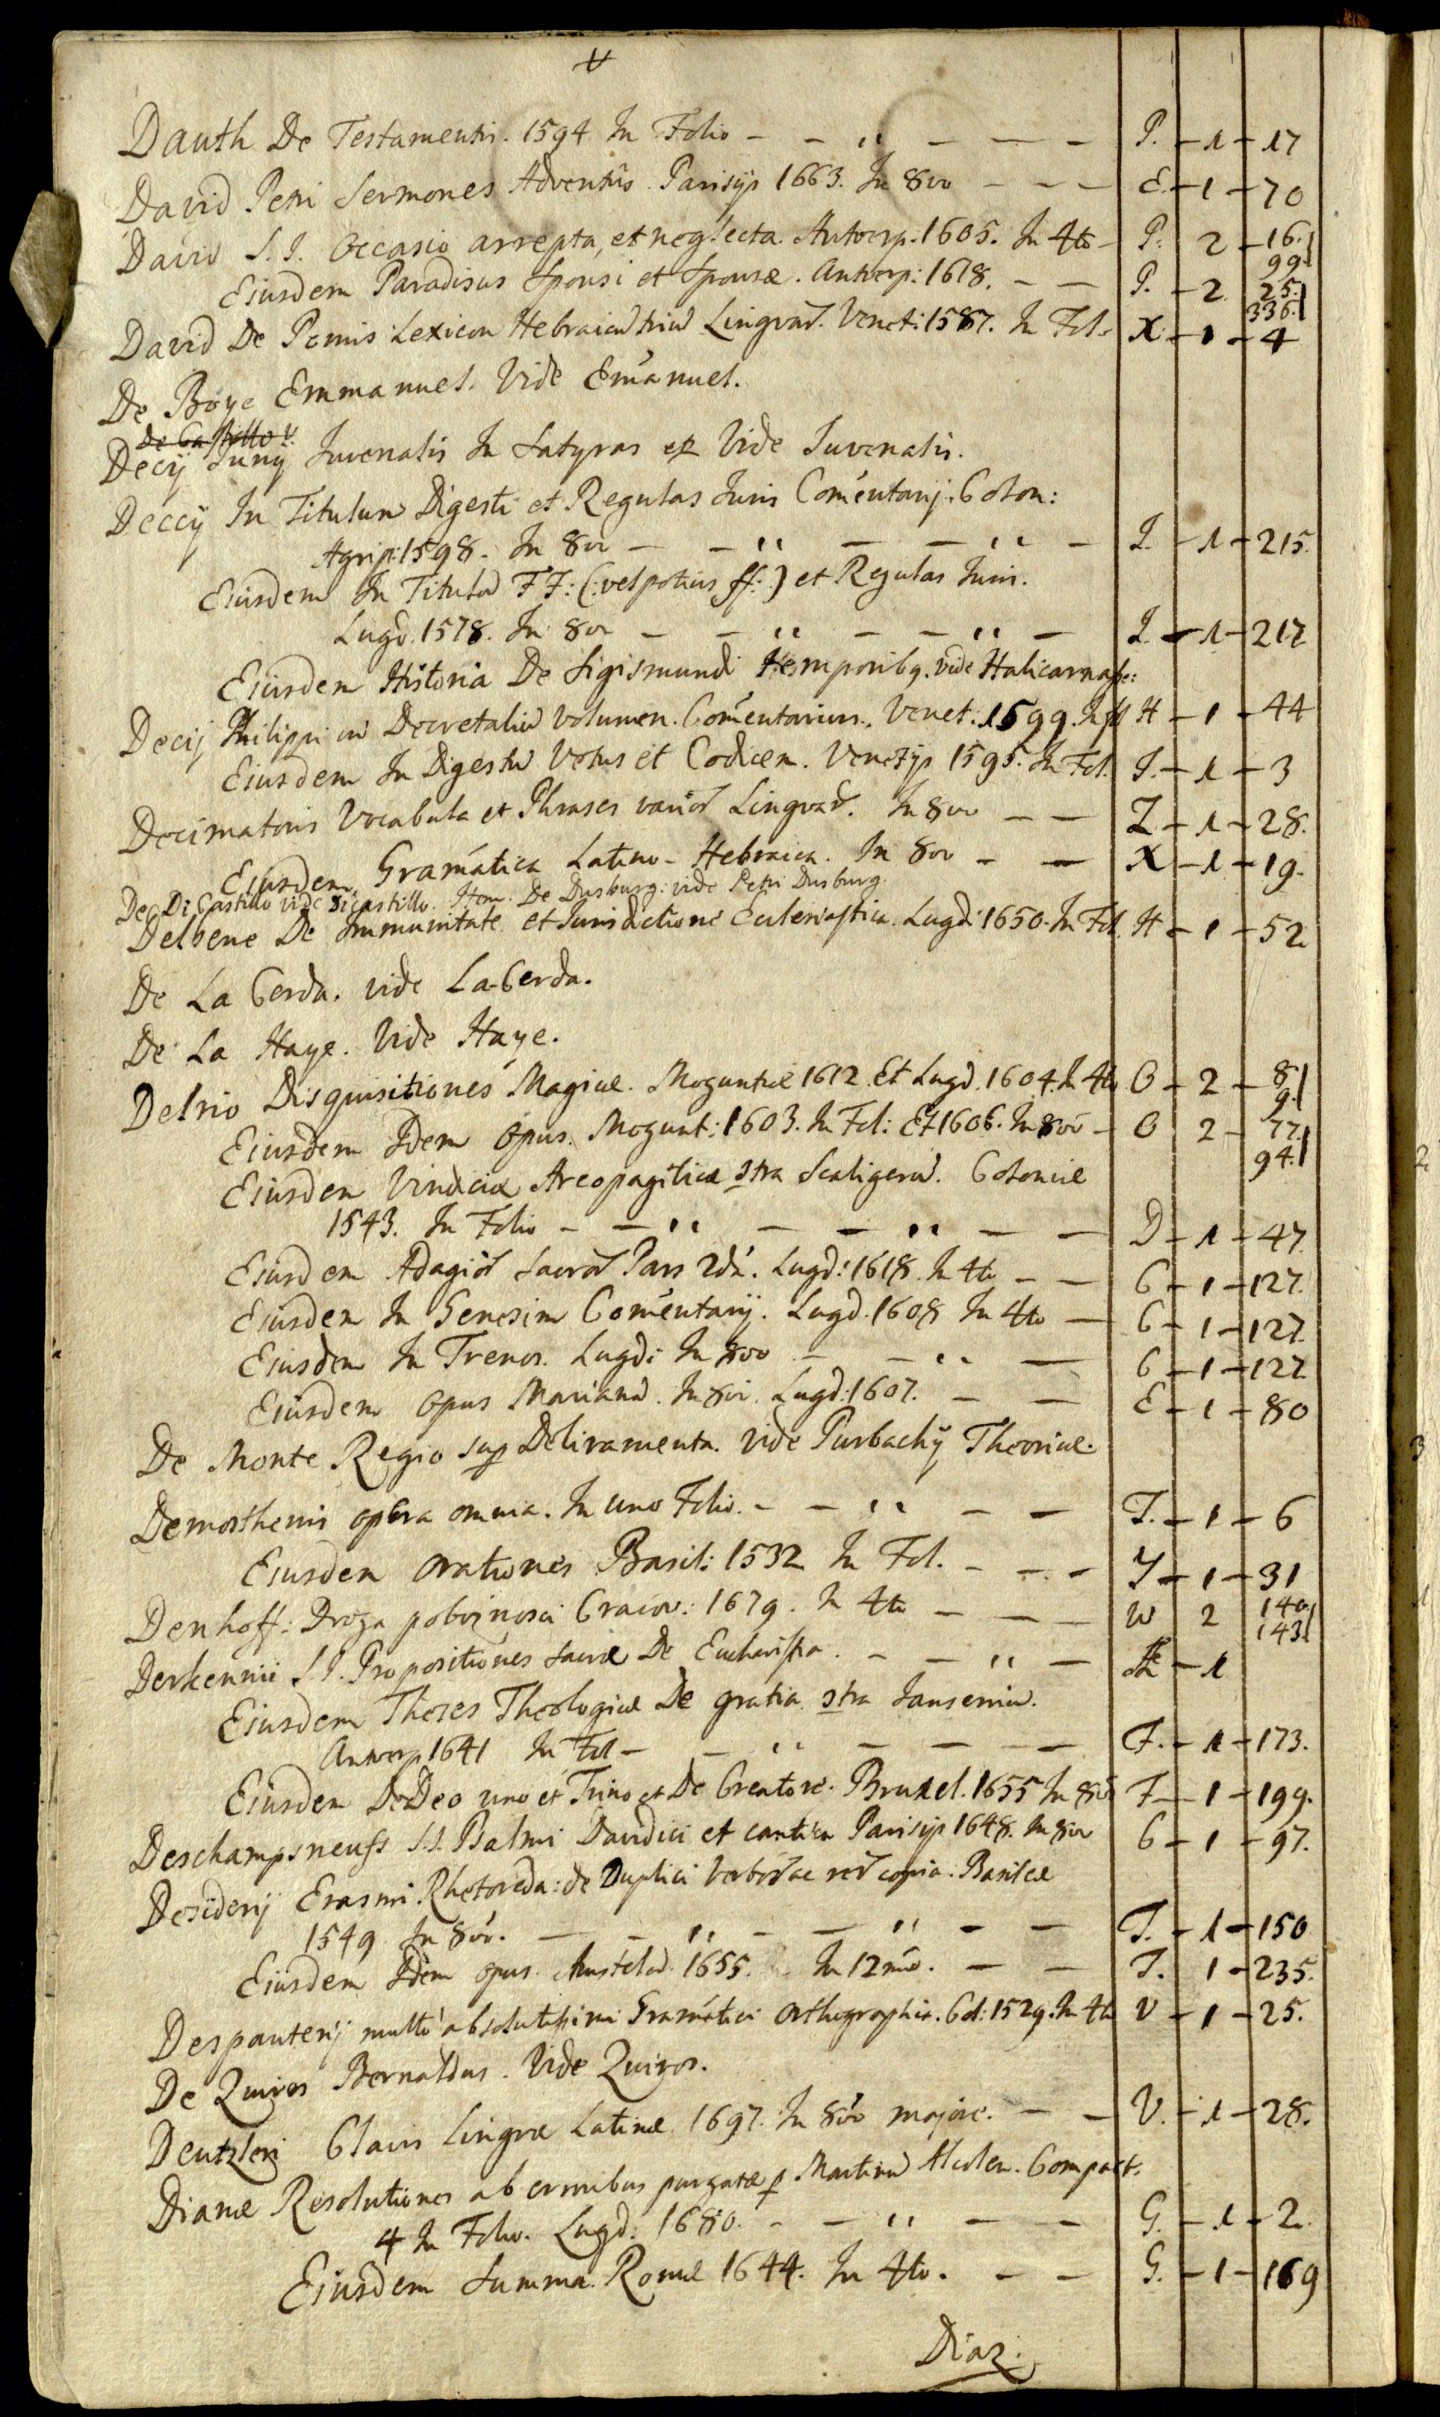 Dauth De Testamentis. 1594 In Folio — — ,, — — — P. — 1 — 17
David Petri Sermones Adventûs. Parisijs 1663. In 8vo — — — E. — 1 — 70
David S. I. Occasio arrepta, et neglecta. Antverp. 1605. In 4to — P. 2 — 16. 99.
Eiusdem Paradisus Sponsi et Sponsæ. Antverp: 1618. — — P. — 2 25. 336.
David De Pomis Lexicon Hebraicū triū Linguar. Venet: 1587. In Fol. X. — 1 — 4
De Boye Emmanuel. Vide Emanuel.
De Castillo V.
Decij Junij Juvenalis In Satyras &c. Vide Juvenalis.
Deccij In Titulum Digesti et Regulas Juris Comentarij. Colon:
Agrip: 1598. In 8vo — — ,, — — ,, — I. — 1 — 215.
Eiusdem In Titulū FF: (: vel potius ff. :) et Regulas Juris.
Lugd. 1578. In 8vo — — ,, — — ,, — I. — 1 — 217
Eiusdem Historia De Sigismundi temporibg. vide Halicarnasse:
Decij Philippi in Decretaliū volumen. Comentarius. Venet: 1599. In fol H — 1 — 44
Eiusdem In Digestū Vetus et Codicem. Venetijs 1595. In Fol. I. — 1 — 3
Decimatoris Vocabula et Phrases varior Linguar. In 8vo — — Z — 1 — 28.
Eiusdem Gramatica Latino-Hebraica. In 8vo — — X — 1 — 19.
De Di Castillo vide Dicastillo. Item. De Dusburg: vide Petri Dusburg.
Delbene De Immunitate et Jurisdictione Ecclesiastica. Lugd. 1650. In Fol. H — 1 — 52
De La Cerda. vide La-Cerda.
De La Haye. Vide Haye.
Delrio Disquisitiones Magicæ. Moguntiæ 1612. Et Lugd. 1604. In 4to O — 2 — 8 9.
Eiusdem Idem Opus. Mogunt: 1603. In Fol: Et 1606. In 8vo — O 2 — 77. 94.
Eiusdem Vindiciæ Areopagiticæ ɔtra Scaligerū. Coloniæ
1543. In Folio — — ,, — — ,, — — D — 1 — 47
Eiusdem Adagior Sacror Pars 2da. Lugd: 1618. In 4to — — C — 1 — 127.
Eiusdem In Genesim Comentarij. Lugd. 1608 In 4to — C — 1 — 127.
Eiusdem In Trenos. Lugd: In 8vo — — ,, — C — 1 — 127
Eiusdem Opus Marianū. In 8vo. Lugd: 1607. — — E — 1 — 80
De Monte Regio sup Deliramenta. Vide Purbachij Theoriæ.
Demosthenis opera omnia. In uno Folio. — — ,, — — T. — 1 — 6
Eiusdem Orationes Basil: 1532 In Fol. — — — Y — 1 — 31
Denhoff: Droga pobożnosci Cracov: 1679. In 4to — — — W 2 140 143
Derkennii S. I. Propositiones sacræ De Eucharistia. — — ,, — — 1
Eiusdem Theses Theologicæ De gratia ɔtra Janseniū.
Antverp 1641 In Fol — — ,, — — — F. — 1 — 173.
Eiusdem De Deo uno et Trino et De Creatore. Bruxel. 1655 In 8vo F — 1 — 199.
Deschampsneufs S. I. Psalmi Davidici et cantica Parisijs 1648. In 8vo C — 1 — 97.
Desiderij Erasmi Rhetorcda: de Duplici Verbor ac rer copia. Basileæ
1549 In 8vo. — — ,, — — ,, — — T. — 1 — 150
Eiusdem Idem opus. Amstelod. 1655. In 12mo. — — T. 1 — 235.
Despauterij multo absolutissimi Gramatici Orthographia. Col. 1529. In 4to V — 1 — 25.
De Quiros Bernaldus. Vide Quiros.
Dentzleri Clavis Linguæ Latinæ 1697. In 8vo majore. — — V. — 1 — 28.
Dianæ Resolutiones ab erroribus purgatæ p Martinū Alcolea. Compact.
4 In Folio. Lugd: 1680. — — ,, — — G. — 1 — 2
Eiusdem Summa. Romæ 1644. In 4to. — — G. — 1 — 169
Diaz.